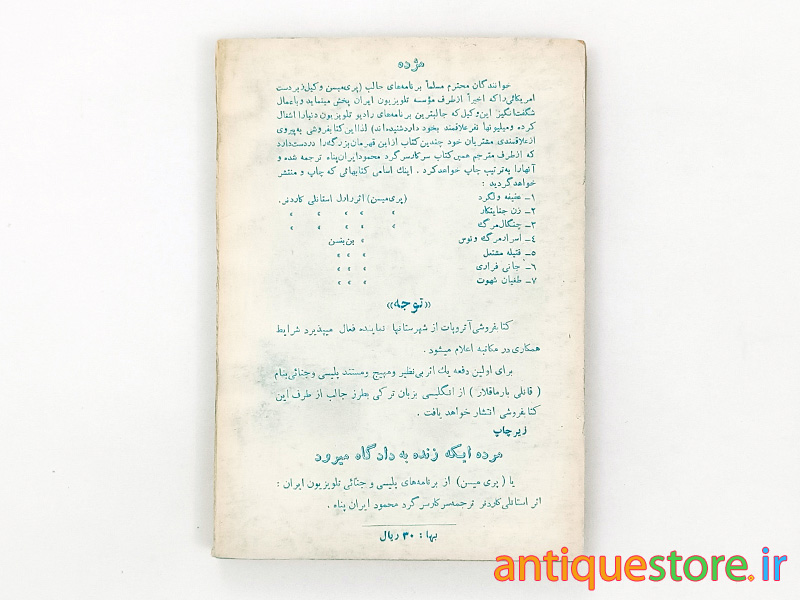 مژده
خوانندگان محترم مسلماً برنامه‌های جالب (پری میسن وکیل زبردست
امریکائی) را که اخیراً از طرف مؤسسه تلویزیون ایران پخش مینماید و با اعمال
شگفت‌انگیز این وکیل که جالبترین برنامه‌های رادیو تلویزیون دنیا را اشغال
کرده و میلیونها نفر علاقمند بخود دارد شنیده‌اند) لذا این کتابفروشی به پیروی
از علاقمندی مشتریان خود چندین کتاب از این قهرمان بزرگ را در دست دارد
که از طرف مترجم همین کتاب سرکار سرگرد محمود ایران پناه ترجمه شده و
آنها را به ترتیب چاپ خواهد کرد. اینك اسامی کتابهائی که چاپ و منتشر
خواهد گردید :
۱ـ عفیفه ولگرد (پری میسن) اثر ارل استانلی گاردنر.
۲ـ زن جنایتکار » » » » »
۳ـ چنگال مرگ » » » » »
۴ـ اسرار مرگ ونوس » بن بنسن
۵ـ فتیله مشتعل » » »
۶ـ جانی فراری » » »
۷ـ طغیان شهوت » » »
«توجه»
کتابفروشی آتروپات از شهرستانها نماینده فعال میپذیرد شرایط
همکاری در مکاتبه اعلام میشود .
برای اولین دفعه یك اثر بی‌نظیر و مهیج و مستند پلیسی و جنائی بنام
( قانلی بارماقلار ) از انگلیسی بزبان ترکی بطرز جالب از طرف این
کتابفروشی انتشار خواهد یافت .
زیر چاپ
مرده ایکه زنده به دادگاه میرود
یا ( پری میسن ) از برنامه‌های پلیسی و جنائی تلویزیون ایران :
اثر استانلی گاردنر ترجمه سرکار سرگرد محمود ایران پناه .
بها : ۳۰ ریال
antiquestore.ir